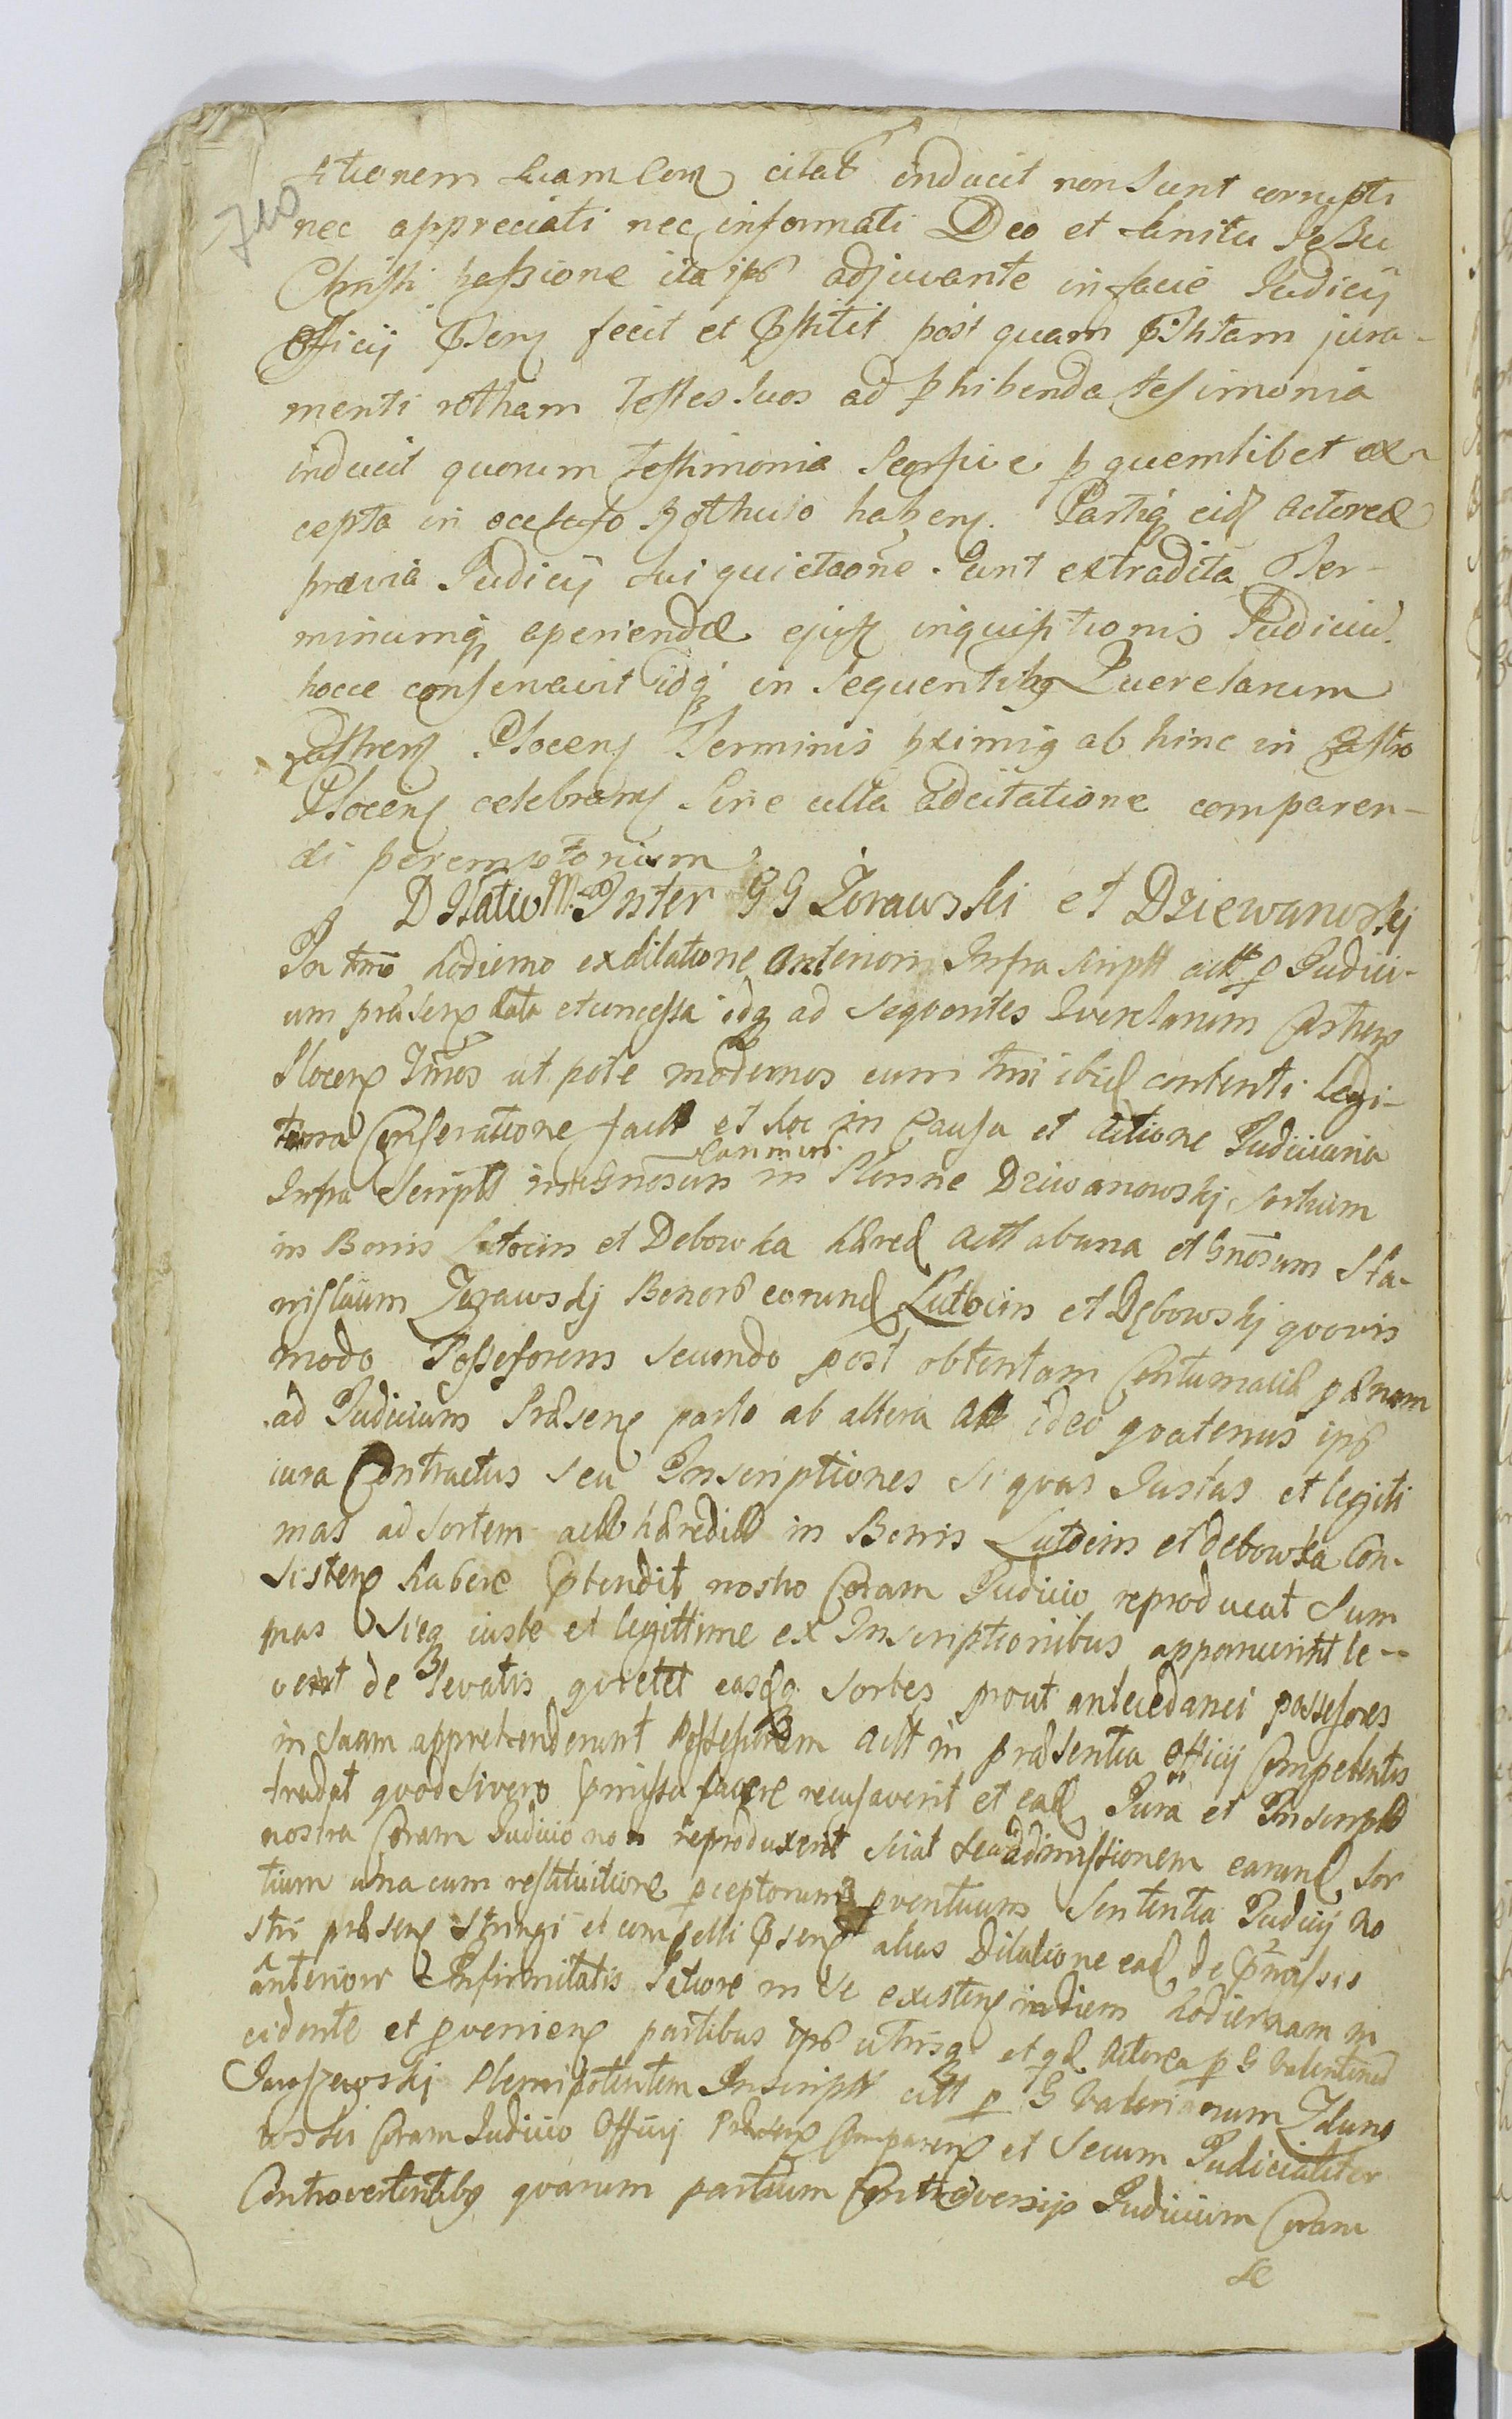 740
ctionem suam Com citat inducit non sunt corrupti
nec appreciati nec informati Deo et sanita Jesu
Christi passione ita ipso adjuvante in facie Judicij
Officij fecit et pstitit post quam pstitam jura-
menti rotham Testes suos ad phibenda tesimonia
inducit quorum Testimonia p quemlibet ex-
cepta in Rothulo habens. Partiq eid Actoreæ
prævia Judicij sui quietaone sunt extradita Ter-
minumq aperiendæ ejusd inquisitionis Judiciu
hocce conservavit idq in sequentibq Querelarum
Castrens Plocens Terminis pximiq ab hinc in Castro
Plocens celebrans sine ulla adcitatione comparen-
di peremptorium
Dilatio M. Inter GG Zorawski et Dziewanowskj
In tmo hodierno ex dilatione Anteriori Infra script actt p Judici-
um præsens lata et concessa idq ad seqventes Qverelarum Castrens
Plocens Tmos ut pote modernos cum tmi ibid contenti legi-
tima Conservatione fact et hoc in Causa et Actione Judiciaria
Casimirū
Infra Script inter Gnosum Dziwanowskj sortium
in Bonis Lutocin et Debowka hæred Actt ab una et Gnosum Sta-
nislaum Zorawskj Bonorb eorund Lutocin et Dębowskj qvovis
modo Possesorem secundo post obtentam Contumaciæ pænam
ad Judicium Præsens parto ab altera ideo qvatenus ipse
iura Contractus seu Inscriptiones si qvas Iustas et legiti
mas ad sortem actt hæredit in Bonis Lutocin et debowka Con-
sistens habere ptendit nostro Coram Judicio reproducat sum
mas Siea iuste et legittime ex Inscriptionibus apparuerint le--
vent de levatis qvietet easdq sortes prout antecedanei possesores
in suam apprehenderunt Possesionem Actt in præsentia officij Competentis
tradat qvod si vero pmissa facere recusaverit et ead Jura et Inscript
nostra Coram Judicio non reproduxerit sciat se ad admissionem earund sor
tium una cum restituitione pceptorum pventuum Sententia Judicij no
stri præsens stringi et compelli psens alias Dilatione ead de pmissis
Anteriori Infirmitatis in se existens in diem hodiernam in
cidente et pveniens partibus ipsb utrisq et qd Actorea p G Valentinū
Plenipotentem Inscript actt p G Valerianum Zduno
wski Coram Judicio Officij Præsens Comparens et secum Judicialiter
Controvertentibq qvarum partium Controversijs Judicium Coram
se